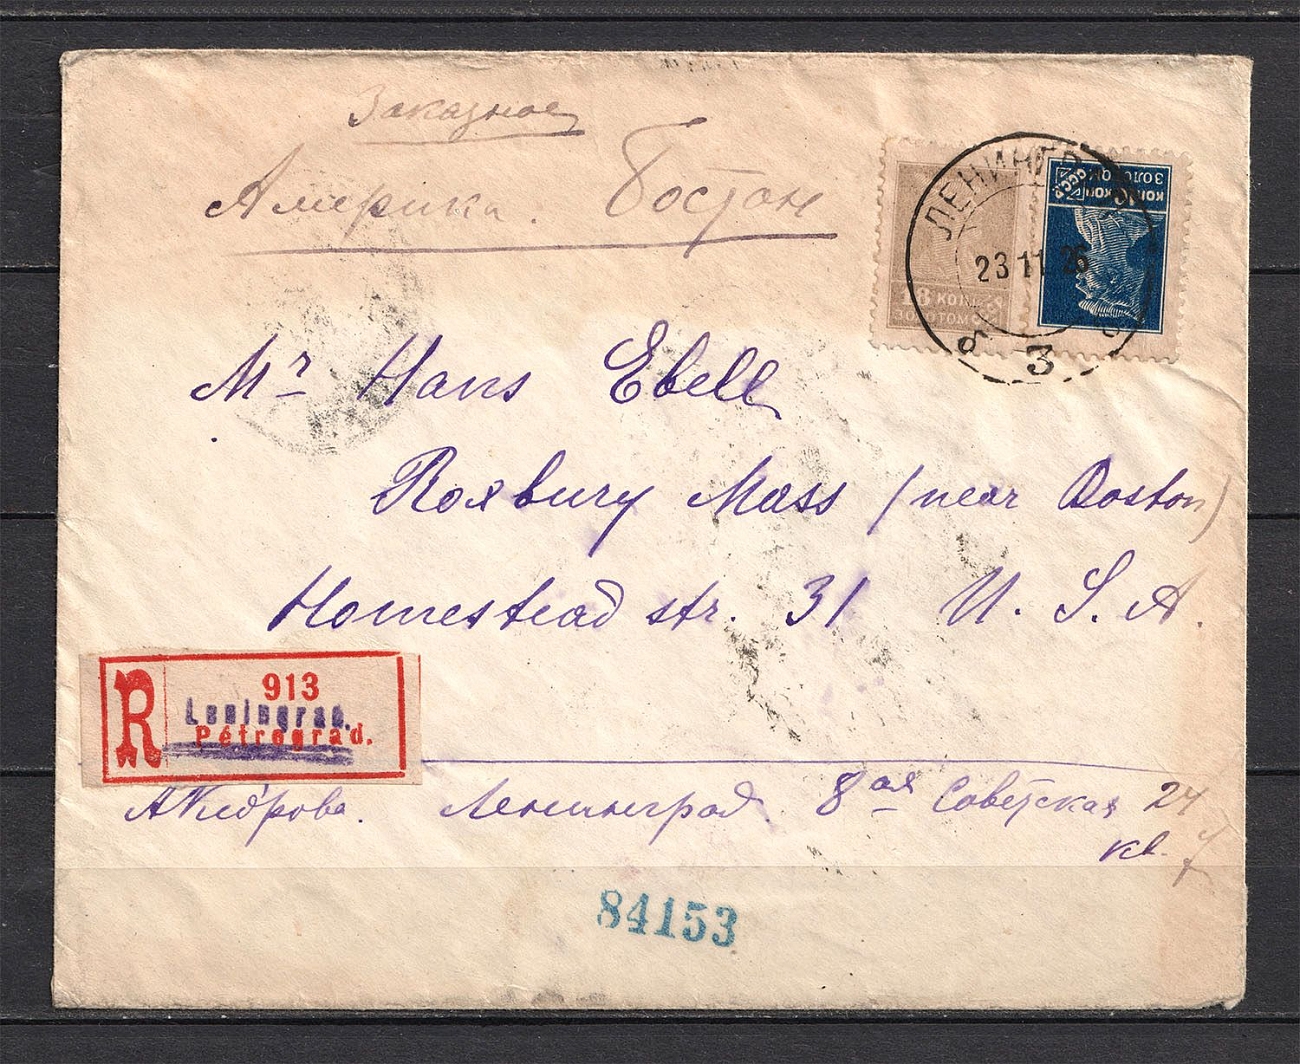 Заказное
Америка. Бостон
ЛЕНИНГРАД
23 11 25
3
18 КОП.
ЗОЛОТОМ
СССР
Mr Hans Ebell
Roxbury Mass (near Boston)
Homestead str. 31 U. S. A.
R
913
Leningrad.
Pétrograd.
АКедрова. Ленинград 8ая Советская 24
кв. 7
84153